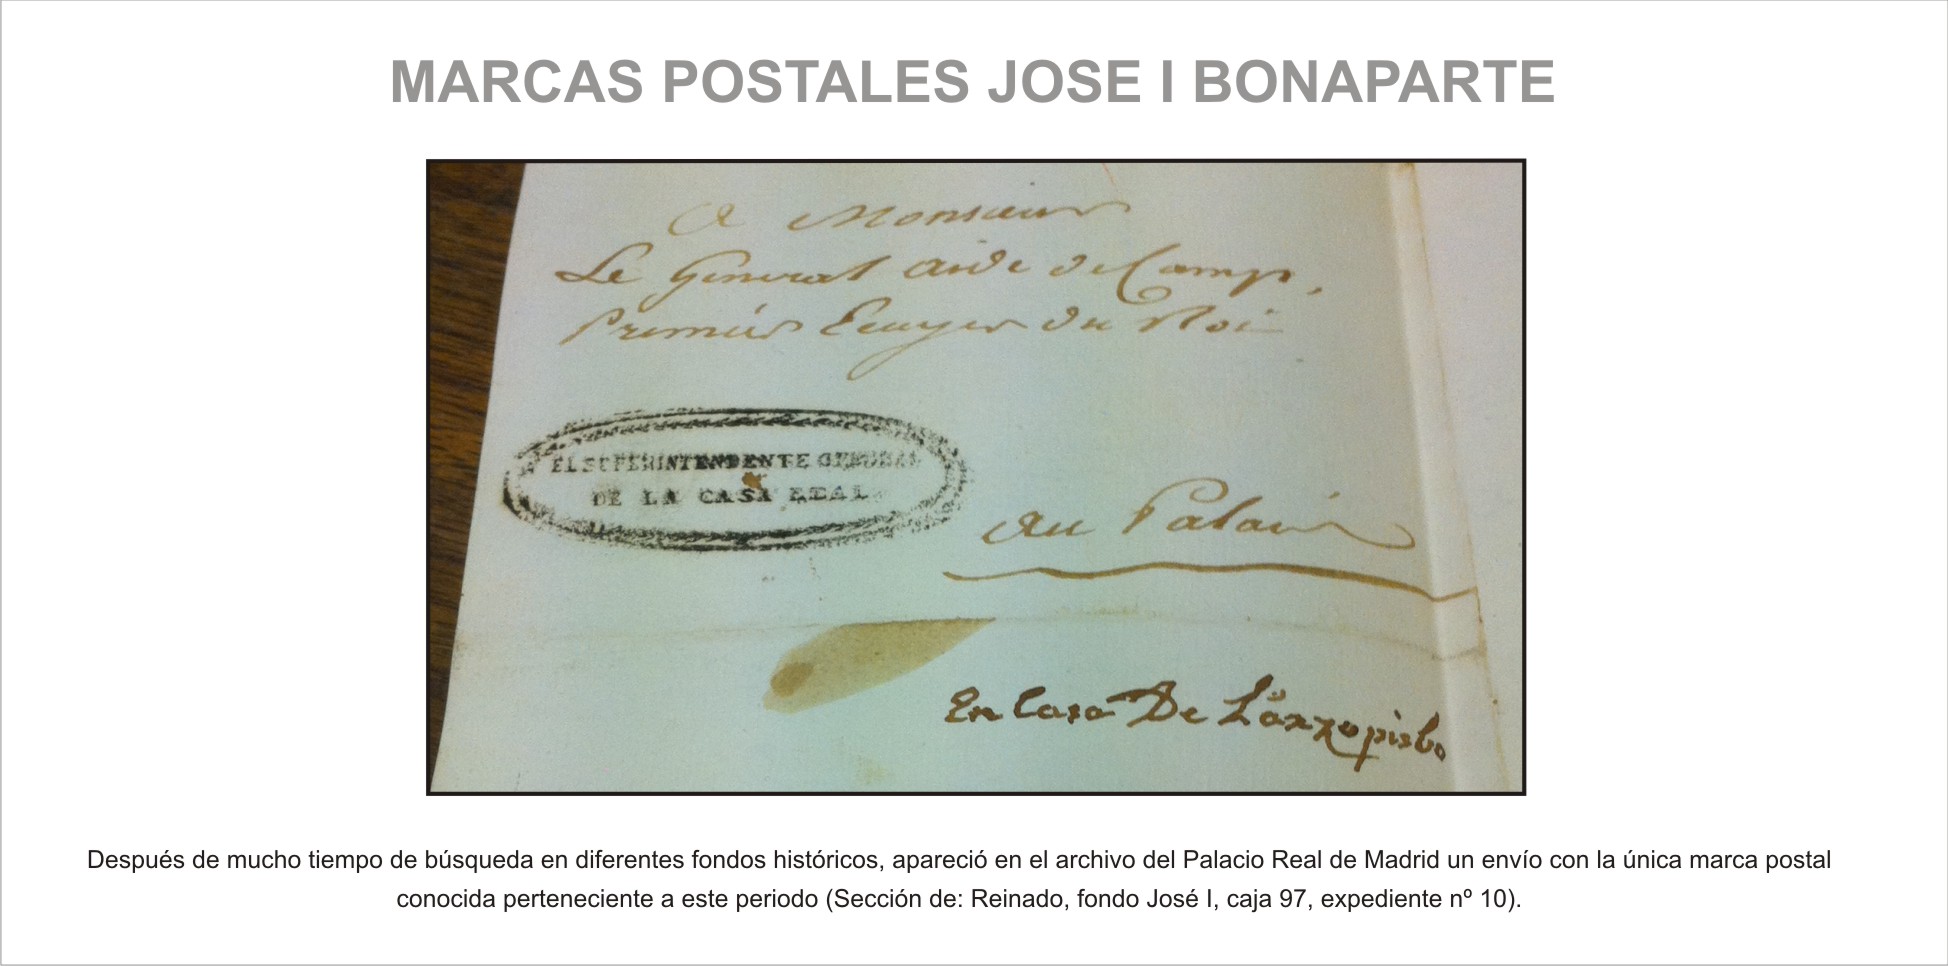 MARCAS POSTALES JOSE I BONAPARTE
A Monsieur
Le General aide de Camp,
Premier Ecuyer du Roi
EL SUPERINTENDENTE GENERAL
DE LA CASA REAL
au Palais
En Casa De
Después de mucho tiempo de búsqueda en diferentes fondos históricos, apareció en el archivo del Palacio Real de Madrid un envío con la única marca postal
conocida perteneciente a este periodo (Sección de: Reinado, fondo José I, caja 97, expediente nº 10).